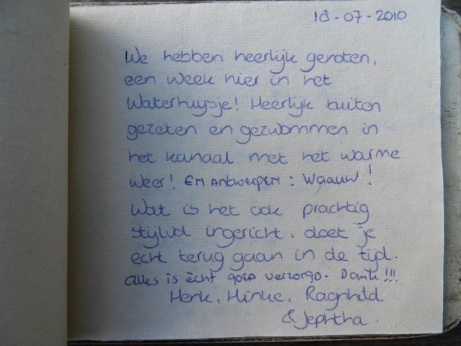 18-07-2010
We hebben heerlijk genoten,
een week hier in het
Waterhuysje! Heerlijk buiten
gezeten en gezwommen in
het kanaal met het warme
weer! En Antwerpen: Waauw!
Wat is het ook prachtig
stijlvol ingericht, doet je
echt terug gaan in de tijd.
Alles is ècht goed verzorgd. Dank!!!
Henk, Hinke, Ragnhild
& Jephtha.